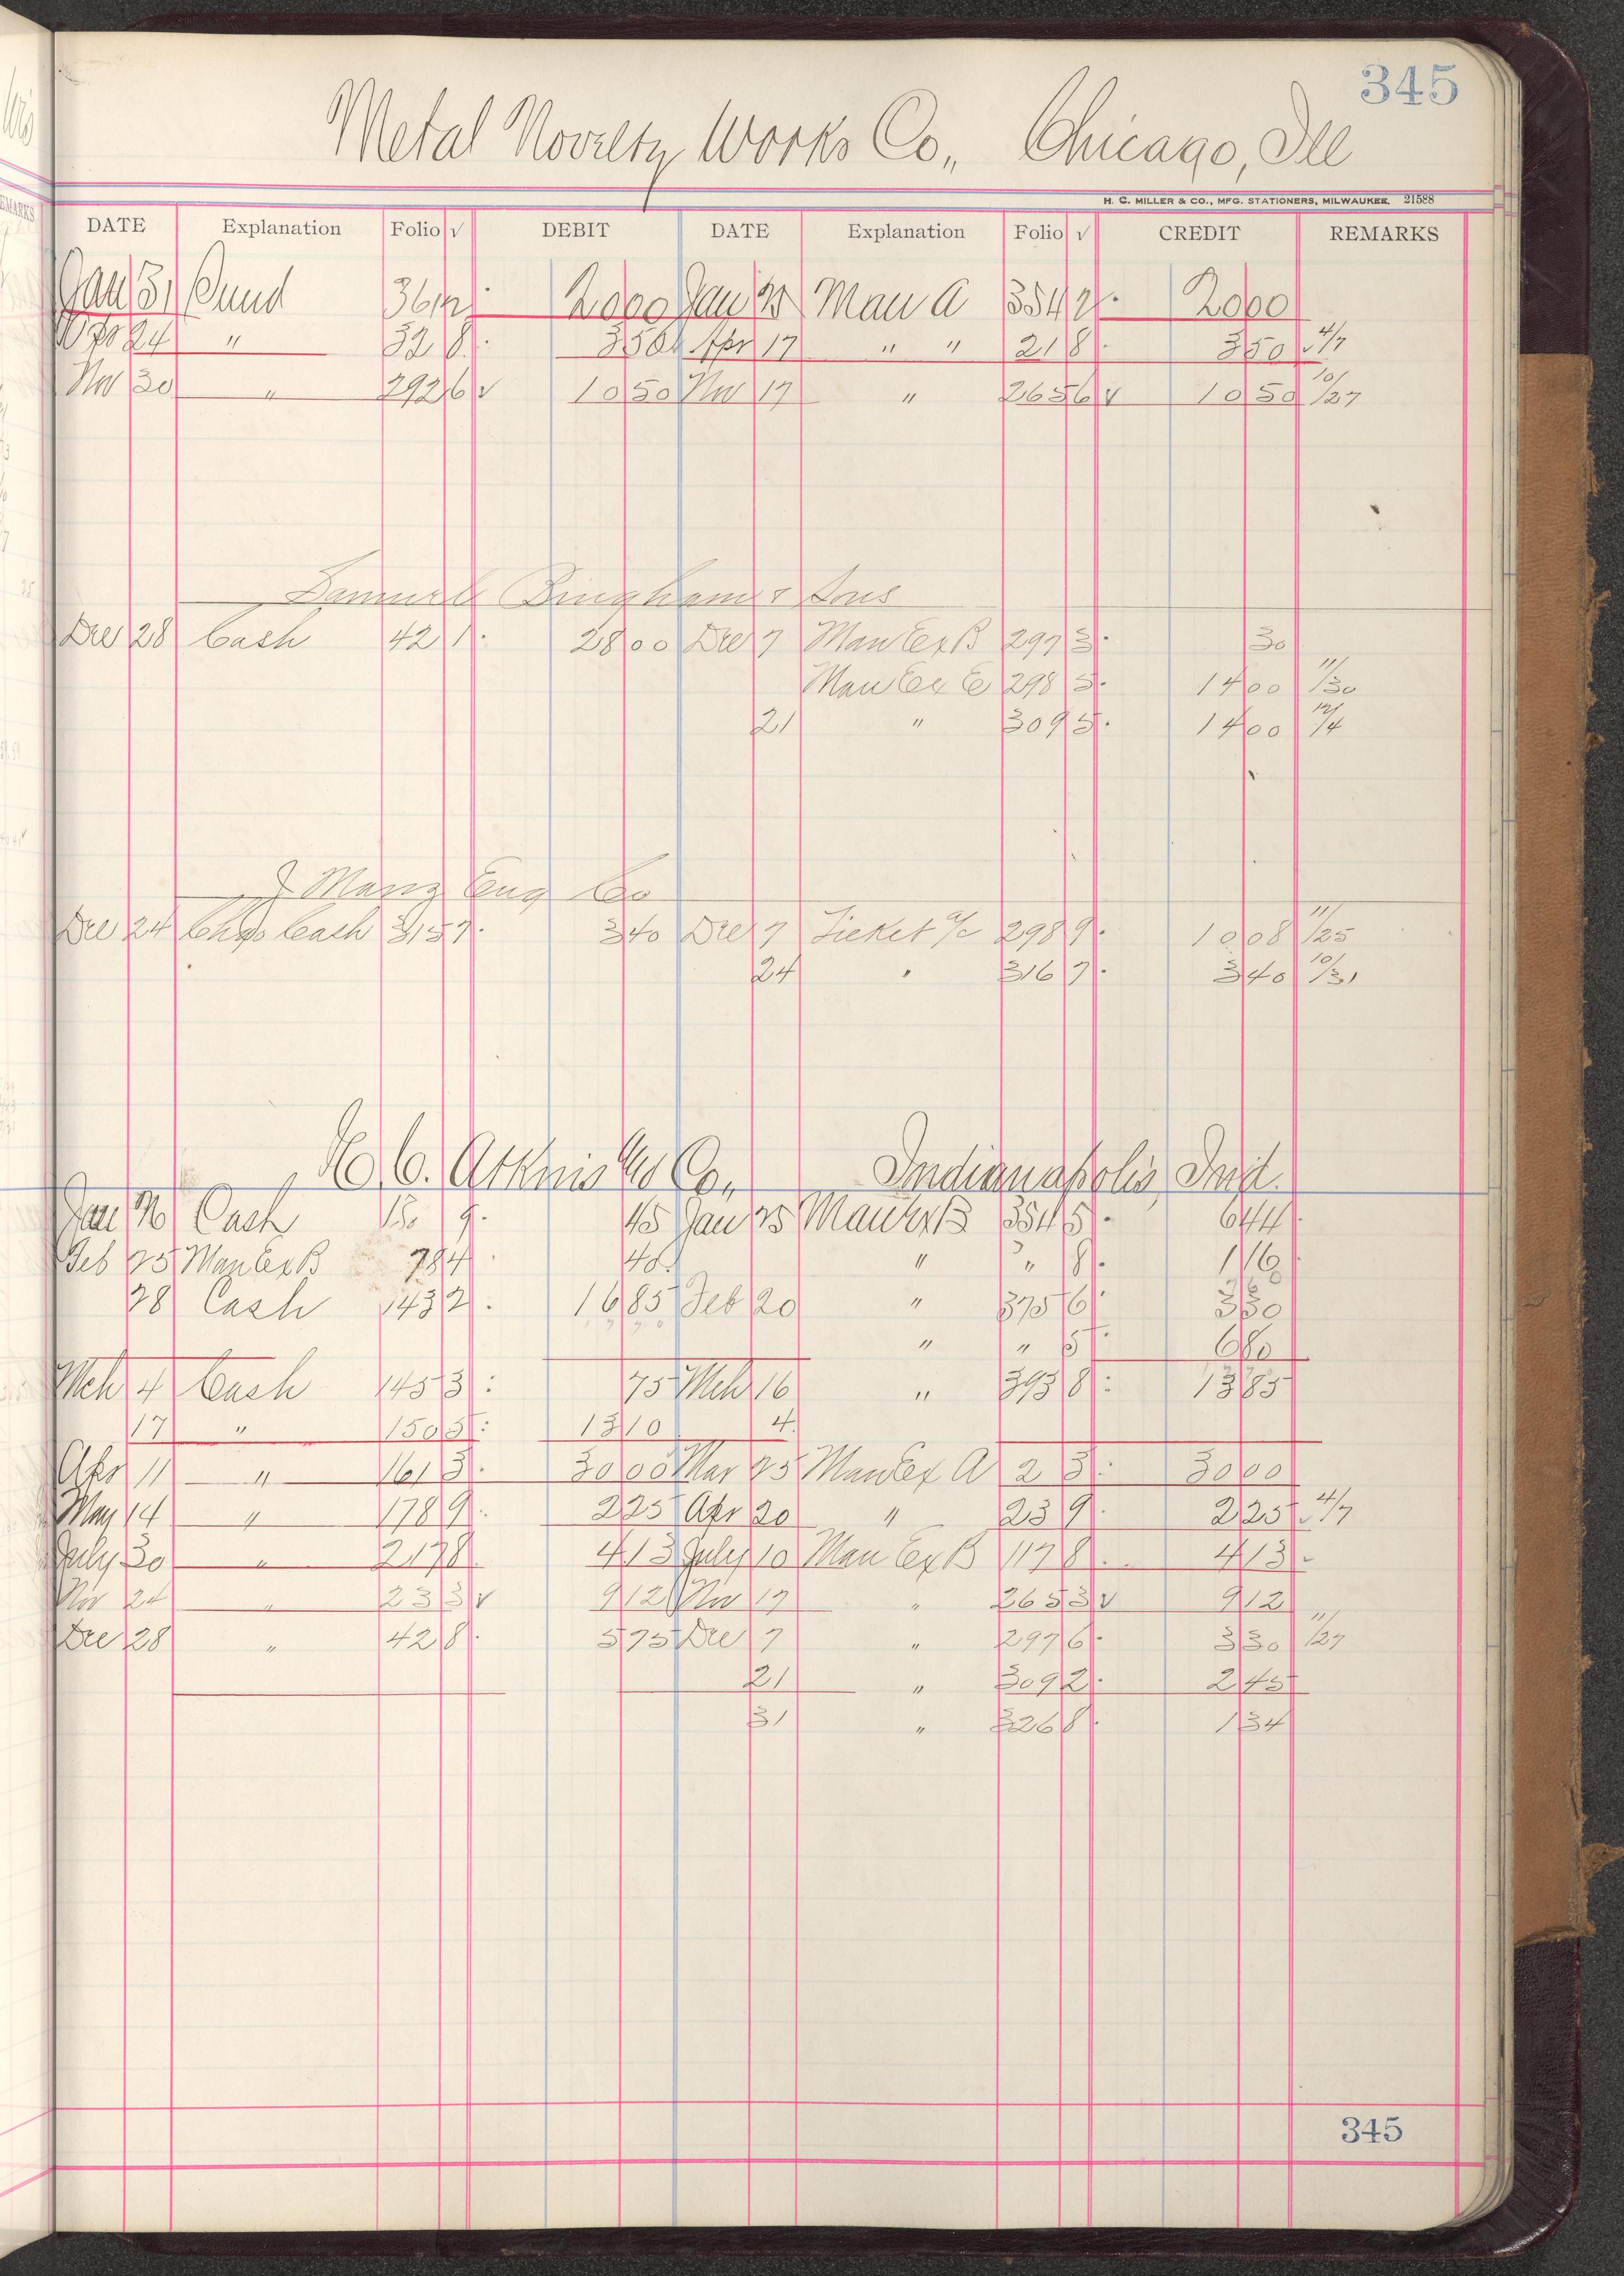 345
Metal Novelty Works Co., Chicago, Ill
H. C. MILLER & CO., MFG. STATIONERS, MILWAUKEE. 21588
DATE Explanation Folio √ DEBIT DATE Explanation Folio √ CREDIT REMARKS
Jan 31 361 2000 Jan 25 Man A 354 2 2000
24 " 32 8 350 Apr 17 " " 21 8 350 4/7
Nov 30 " 292 6 √ 1050 Nov 17 " 265 6 √ 1050 10/27
Samuel Bingham & Sons
Dec 28 Cash 42 1 2800 Dec 7 Man Ex B 297 3 30
Man Ex E 298 5 1400 11/30
21 " 309 5 1400 12/4
J Manz Eng Co
Dec 24 Chgo Cash 315 7 340 Dec 7 Ticket a/c 298 9 1008 11/25
24 " 316 7 340 10/31
E. C. Atkins & Co., Indianapolis Ind.
Jan 26 Cash 130 9 45 Jan 25 Man Ex B 354 5 644
Feb 25 Man Ex B 78 4 40 " " 8 116
28 Cash 143 2 1685 Feb 20 " 375 6 330
" " 5 680
Mch 4 Cash 145 3 75 Mch 16 " 393 8 1385
17 " 150 5 1310 4
Apr 11 " 161 3 3000 Mar 25 Man Ex A 2 3 3000
May 14 " 178 9 225 Apr 20 " 23 9 225 4/7
July 30 " 217 8 413 July 10 Man Ex B 117 8 413
Nov 24 " 23 3 √ 912 Nov 17 " 265 3 √ 912
Dec 28 " 42 8 575 Dec 7 " 297 6 330 11/27
21 " 309 2 245
31 " 326 8 134
345